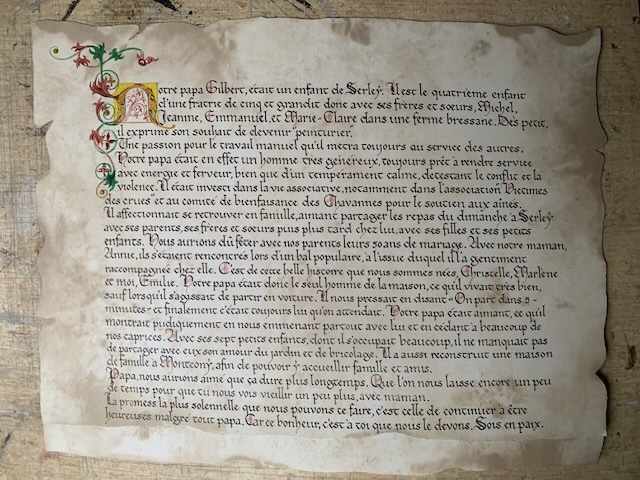 Notre papa Gilbert, était un enfant de Serley. Il est le quatrième enfant
d'une fratrie de cinq et grandit donc avec ses frères et sœurs, Michel,
Jeanine, Emmanuel, et Marie-Claire dans une ferme bressane. Dès petit,
il exprime son souhait de devenir "peinturier".
Une passion pour le travail manuel qu'il metra toujours au service des autres.
Notre papa était en effet un homme très généreux, toujours prêt à rendre service
avec énergie et ferveur, bien que d'un tempérament calme, détestant le conflit et la
violence. Il était investi dans la vie associative, notamment dans l'association "Victimes
des crues" et au comité de bienfaisance des Chavannes pour le soutien aux aînés.
Il affectionnait se retrouver en famille, aimant partager les repas du dimanche à Serley
avec ses parents, ses frères et sœurs puis plus tard chez lui, avec ses filles et ses petits
enfants. Nous aurions dû fêter avec nos parents leurs 50 ans de mariage. Avec notre maman,
Annie, ils s'étaient rencontrés lors d'un bal populaire, à l'issue duquel il l'a gentiment
raccompagnée chez elle. C'est de cette belle histoire que nous sommes nées, Christelle, Marlène
et moi, Emilie. Notre papa était donc le seul homme de la maison, ce qu'il vivait très bien,
sauf lorsqu'il s'agissait de partir en voiture. Il nous pressait en disant "On part dans 5-
minutes" et finalement c'était toujours lui qu'on attendait. Notre papa était aimant, ce qu'il
montrait pudiquement en nous emmenant partout avec lui et en cédant à beaucoup de
nos caprices. Avec ses sept petits enfants, dont il s'occupait beaucoup, il ne manquait pas
de partager avec eux son amour du jardin et de bricolage. Il a aussi reconstruit une maison
de famille à Montcony, afin de pouvoir y accueillir famille et amis.
Papa, nous aurions aimé que ça dure plus longtemps. Que l'on nous laisse encore un peu
de temps pour que tu nous vois vieillir un peu plus, avec maman.
La promess la plus solennelle que nous pouvons te faire, c'est celle de continuer à être
heureuses malgré tout papa. Car ce bonheur, c'est à toi que nous le devons. Sois en paix.